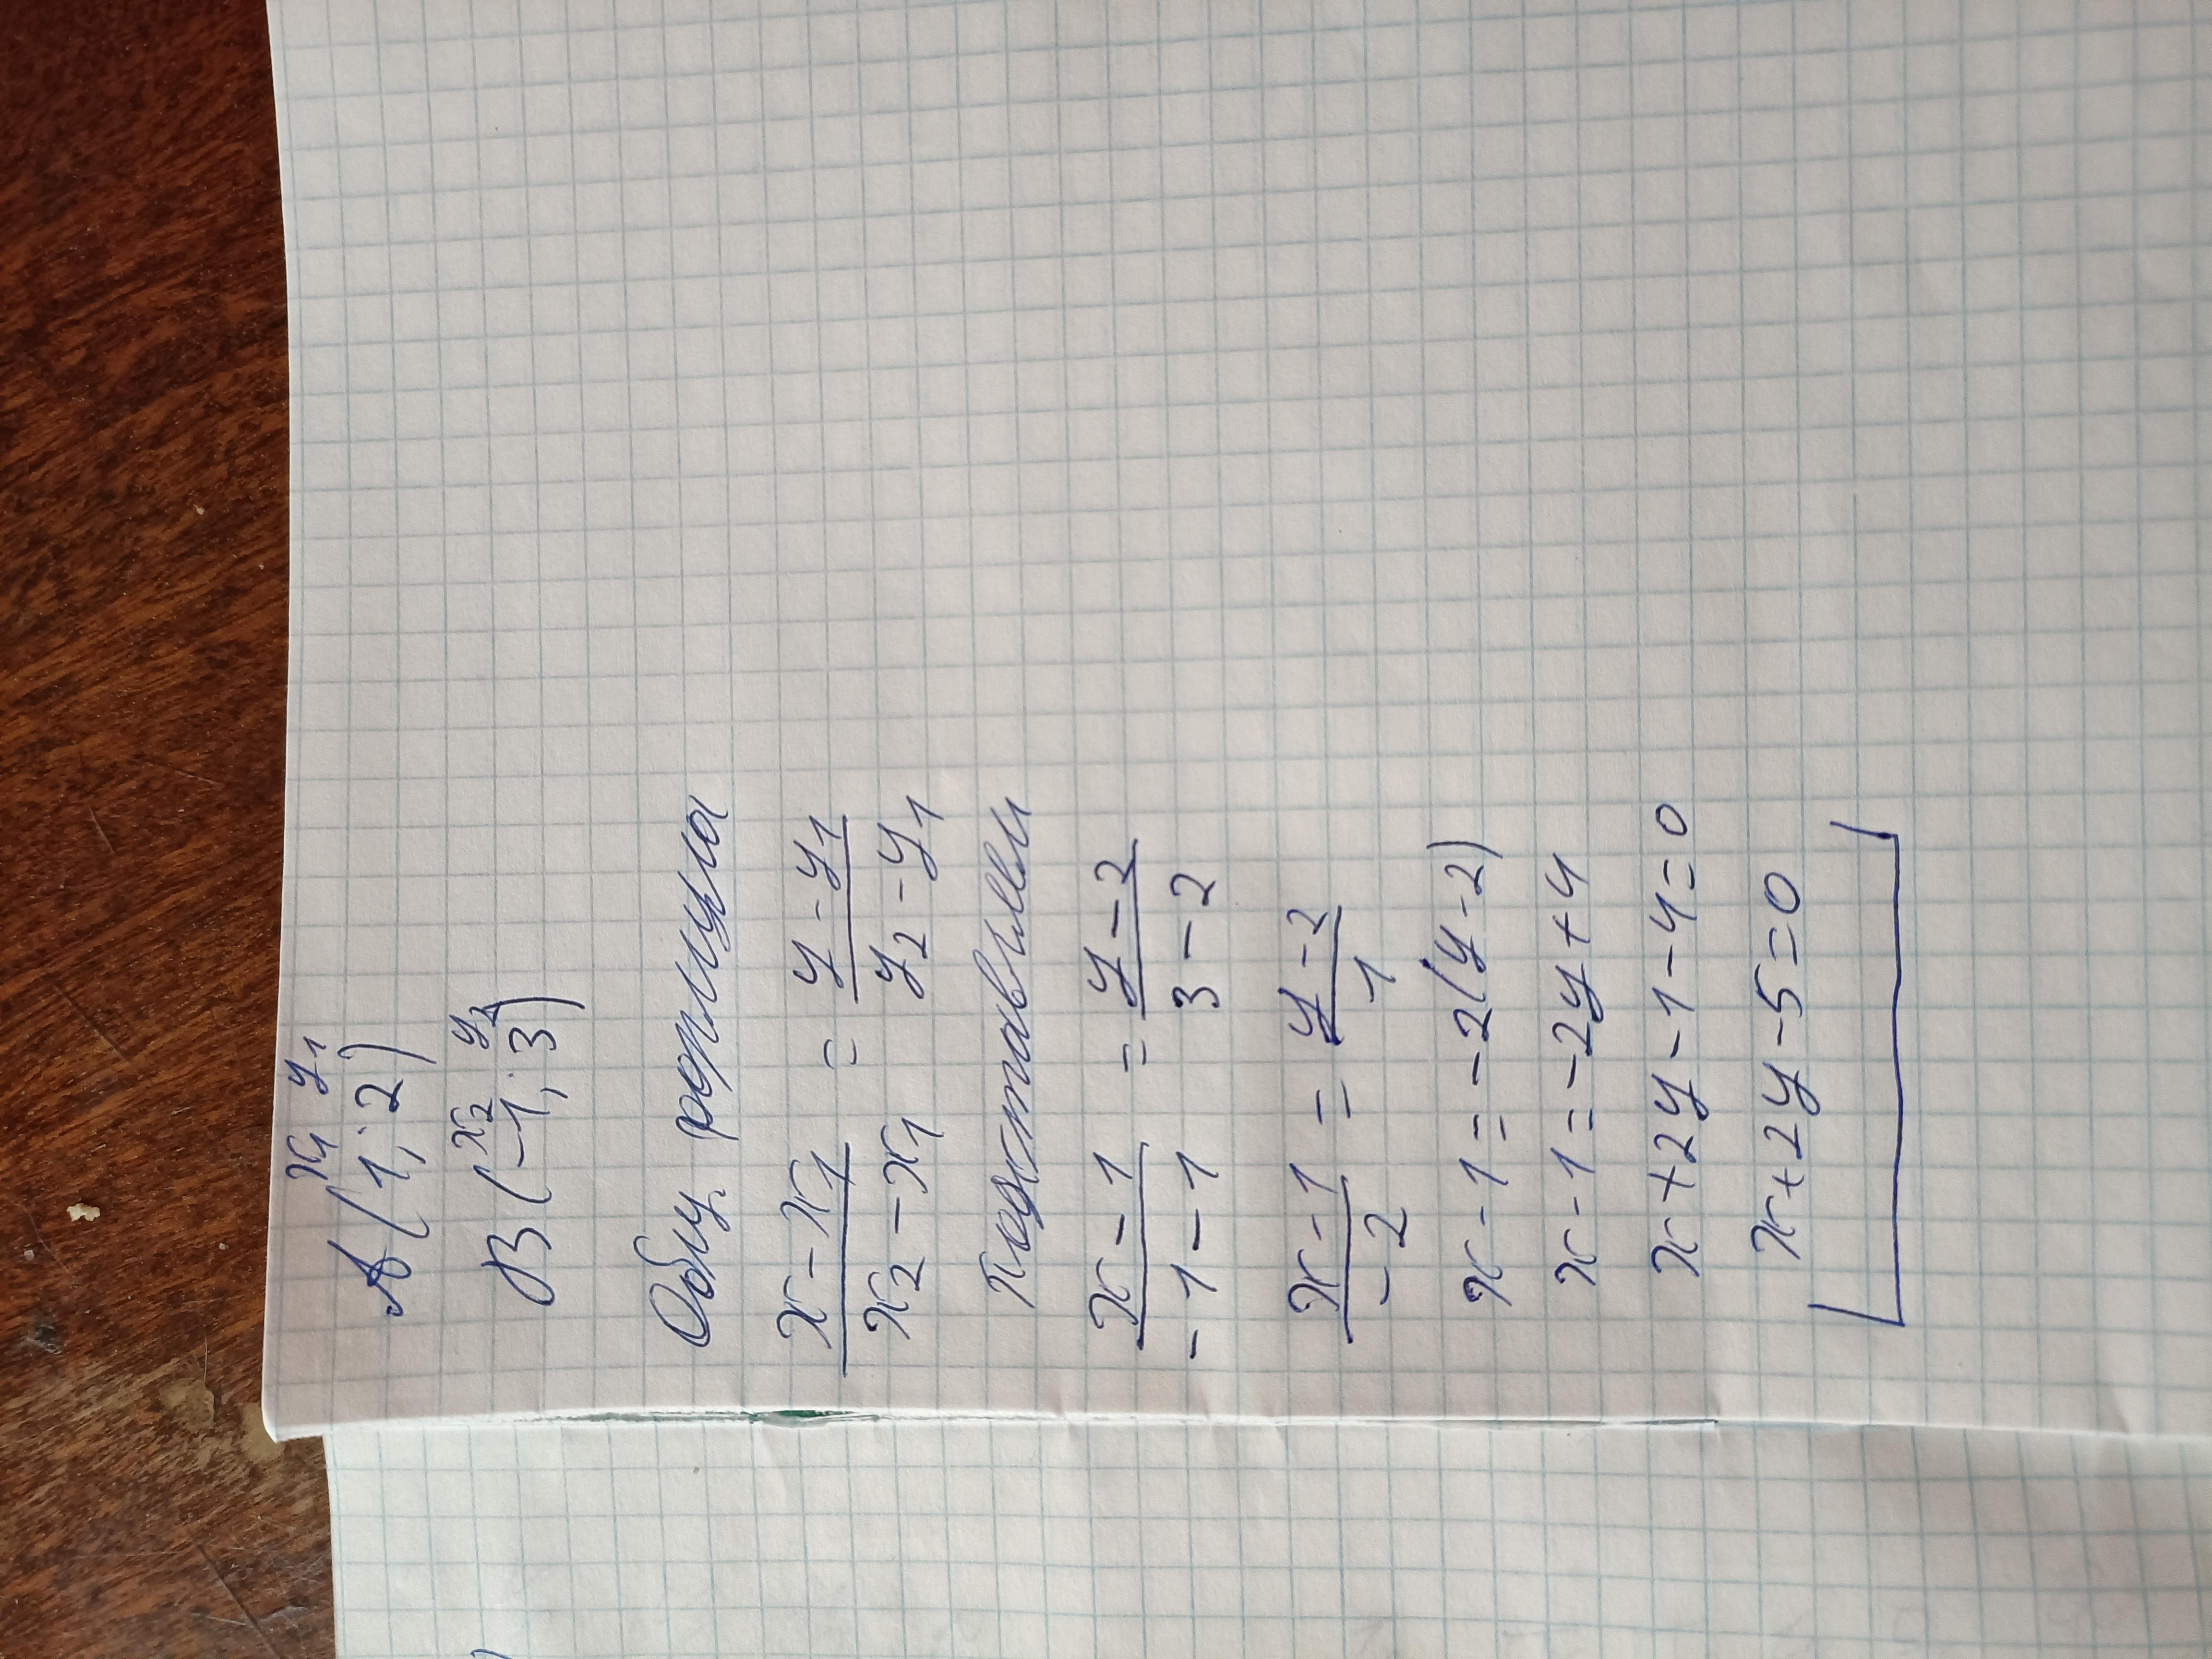 x₁ y₁
A (1; 2)
x₂ y₂
B (-1; 3)
Общ. формула
x - x₁ / x₂ - x₁ = y - y₁ / y₂ - y₁
Подставляем
x - 1 / -1 - 1 = y - 2 / 3 - 2
x - 1 / -2 = y - 2 / 1
x - 1 = -2(y - 2)
x - 1 = -2y + 4
x + 2y - 1 - 4 = 0
x + 2y - 5 = 0